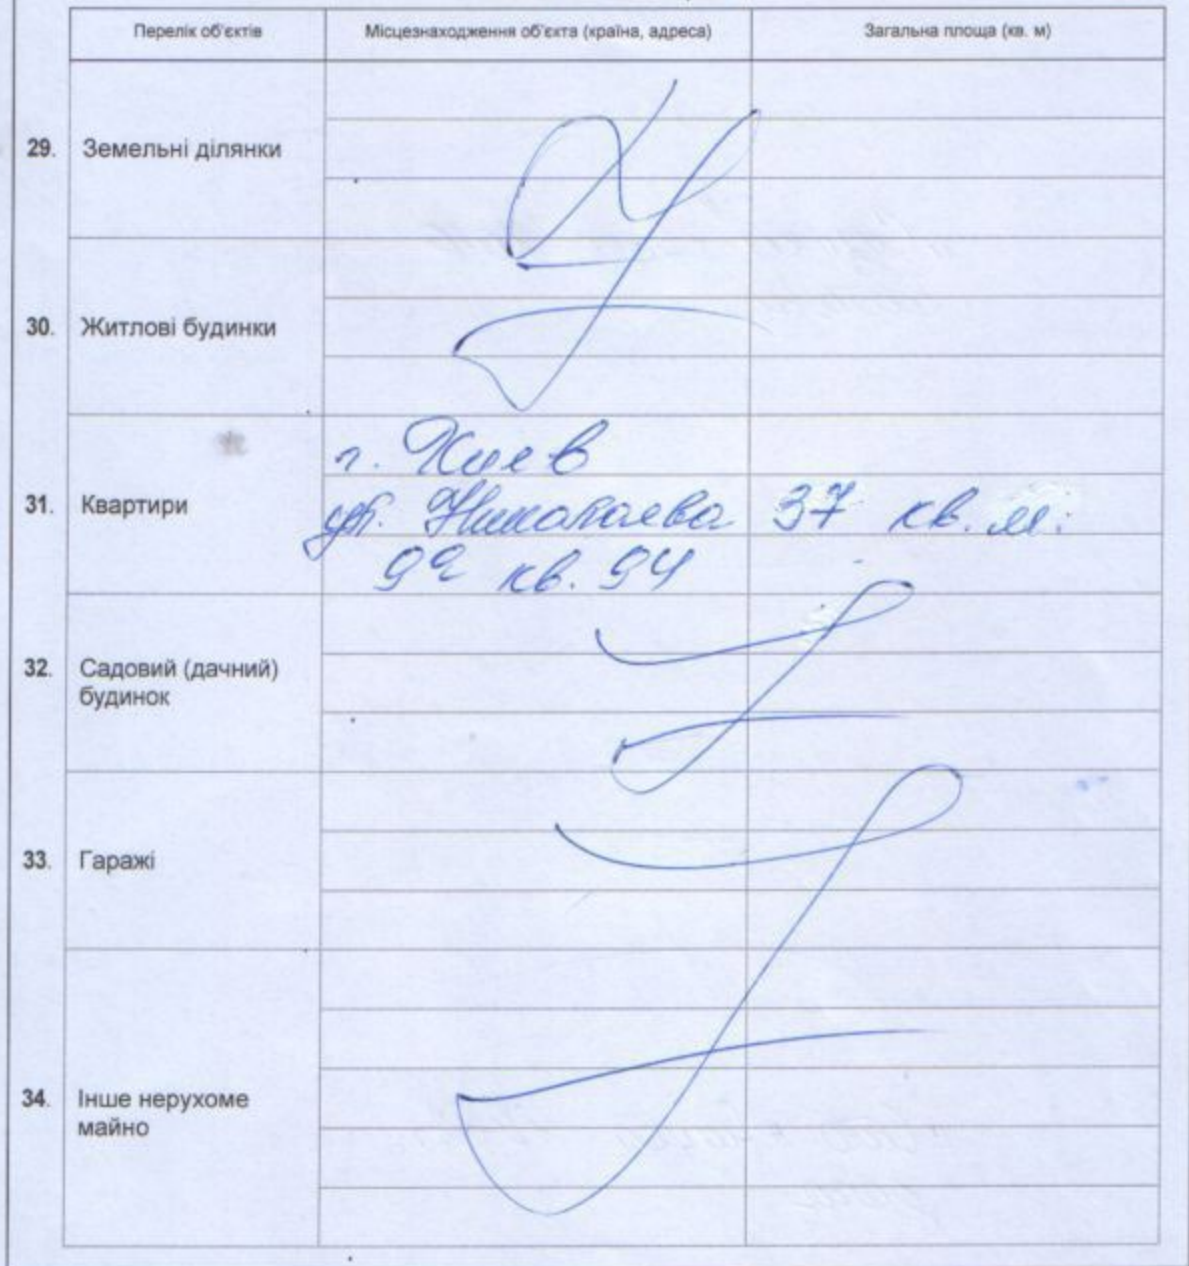 Перелік об'єктів Місцезнаходження об'єкта (країна, адреса) Загальна площа (кв. м)
29. Земельні ділянки
30. Житлові будинки
г. Киев
31. Квартири ул. Николаева 37 кв. м.
9а кв. 94
32. Садовий (дачний)
будинок
33. Гаражі
34. Інше нерухоме
майно